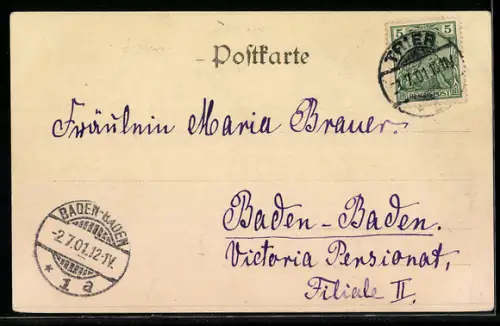 Postkarte
5 5
TRIER
-2.7.01.11-12V.
REICHSPOST
Fräulein Maria Brauer.
Baden-Baden.
Victoria Pensionat,
Filiale II.
BADEN-BADEN
-2.7.01.12-1N.
* 1 a